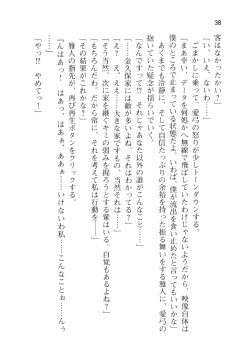 38
客はなかったかい？」
「い、いえ、ないわ……」
ごまかしに乗って、愛弓の怒りが少しトーンダウンする。
「まあ幸い、データを何処かへ無線で飛ばしていたわけじゃないようだから、映像自体は
僕のところで止まっている状態だよ。いわば、僕が流出を食い止めたと言ってもいいかな」
あくまでも冷静に、そして自信たっぷりの余裕を持った振る舞いをする雅人に、愛弓の
抱いていた疑念が揺らいでいく。
「なんですって？　それじゃあなた以外の誰がこんなこと……」
「……金久保家には敵が多いよね。それはわかるかい？」
「え？　え、ええ……大きな家ですもの、当然それは……」
「そう当然、次に家を継ぐキミの弱みを握ろうとする輩はいる。自覚もあるよね？」
「もちろんだわ。だから常に、それを考えて私は行動を――」
「その結果がこれかな？」
雅人の指先が、再び再生ボタンをクリックする。
『んはあっ！　はあっ、はぁぁ、あああ……いけないわ私……こんなことぉ……んぅ
「やっ!!　やめてっ！」